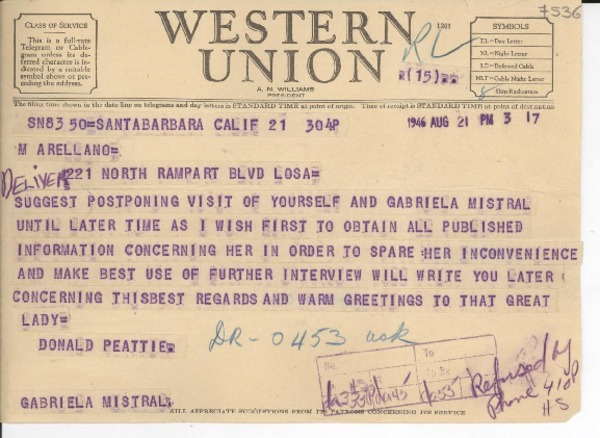 7536
CLASS OF SERVICE
This is a full-rate
Telegram or Cable-
gram unless its de-
ferred character is
indicated by a suitable
symbol above or pre-
ceding the address.
WESTERN
UNION
1201
A. N. WILLIAMS
PRESIDENT
RL
(15)
SYMBOLS
DL=Day Letter
NL=Night Letter
LC=Deferred Cable
NLT=Cable Night Letter
Ship Radiogram
The filing time shown in the date line on telegrams and day letters is STANDARD TIME at point of origin. Time of receipt is STANDARD TIME at point of destination
SN83 50=SANTABARBARA CALIF 21 304P
1946 AUG 21 PM 3 17
M ARELLANO=
DELIVER 221 NORTH RAMPART BLVD LOSA=
SUGGEST POSTPONING VISIT OF YOURSELF AND GABRIELA MISTRAL
UNTIL LATER TIME AS I WISH FIRST TO OBTAIN ALL PUBLISHED
INFORMATION CONCERNING HER IN ORDER TO SPARE HER INCONVENIENCE
AND MAKE BEST USE OF FURTHER INTERVIEW WILL WRITE YOU LATER
CONCERNING THISBEST REGARDS AND WARM GREETINGS TO THAT GREAT
LADY=
DONALD PEATTIE.
DR-0453 ask
No.
To
To Be
Refused by
Phone 410P
HS
GABRIELA MISTRAL.
WILL APPRECIATE SUGGESTIONS FROM ITS PATRONS CONCERNING ITS SERVICE